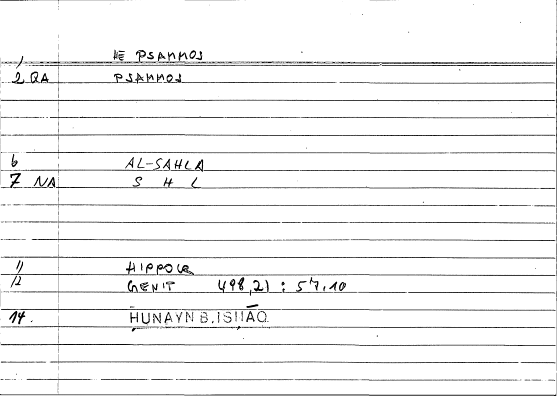 1 HE PSAMMOS
2 QA PSAMMOS
6 AL-SAHLA
7 NA S H L
11 HIPPOCR
12 GENIT 498,21 : 57,10
14. HUNAYN B. ISHAQ